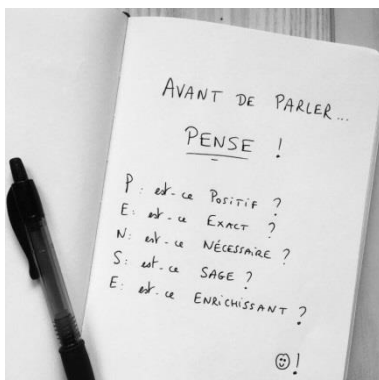 AVANT DE PARLER...
PENSE !
P: est-ce POSITIF ?
E: est-ce EXACT ?
N: est-ce NÉCESSAIRE ?
S: est-ce SAGE ?
E: est-ce ENRICHISSANT ?
☺!